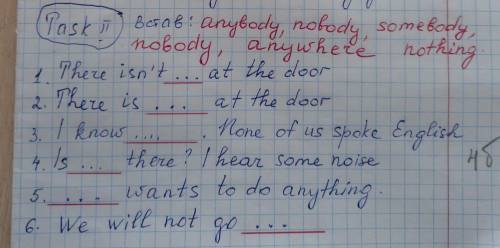 Task II Встав: anybody, nobody, somebody,
nobody, anywhere nothing.
1. There isn't ... at the door
2. There is ... at the door
3. I know .... . None of us spoke English
4. Is ... there? I hear some noise
4б
5. ... wants to do anything.
6. We will not go ...